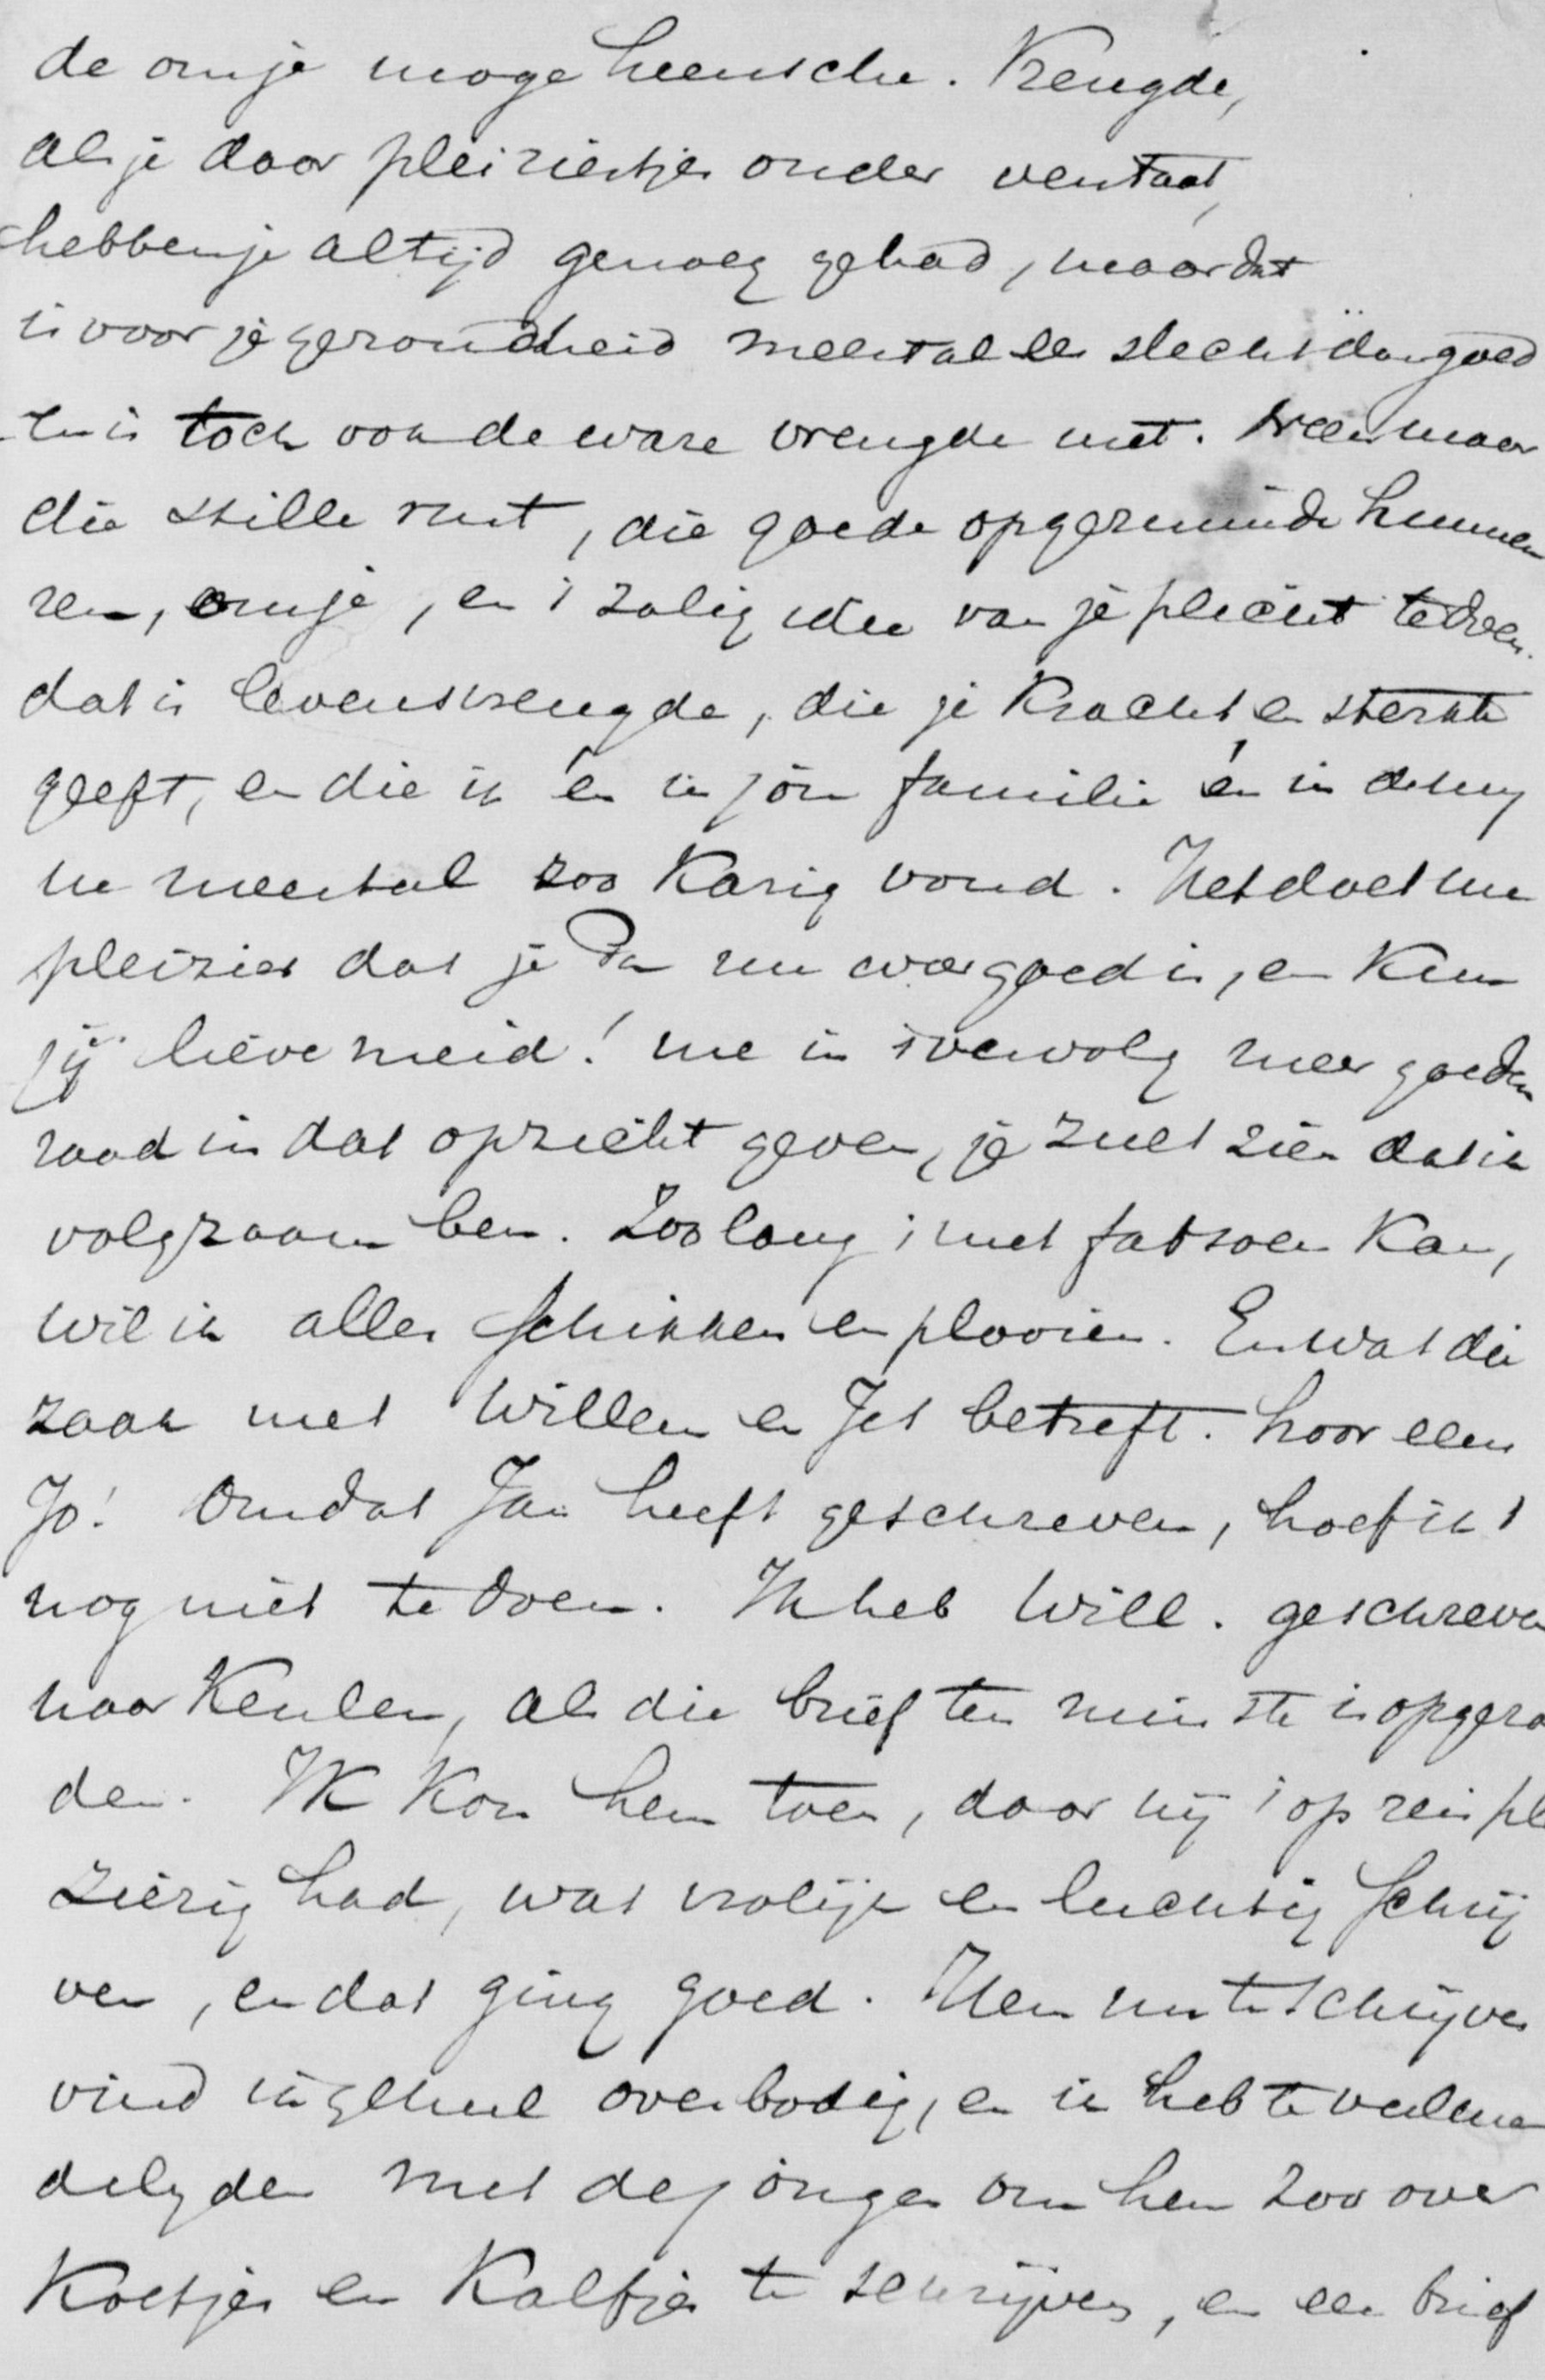 de om je moge heensche. Vreugde,
als je daar pleiziertjes onder verstaat,
hebben je altijd genoeg gehad, maar dat
is voor je gezondheid meestal eer slecht dan goed
En is toch ook de ware vreugde niet. Neen maar
die stille rust, die goede opgeruimde humeu
ren, om je, en 't zalig idee van je plicht te doen.
dat is levensvreugde, die je kracht en sterkte
geeft, en die ik én in jou familie én in de my
ne meestal zoo karig vond. Het doet me
pleizier dat je Pa nu weer goed is, en kun
jij lieve meid! me in 't vervolg meer goeden
raad in dat opzicht geven, je zult zien dat ik
volgzaam ben. Zoo lang 't met fatsoen kan,
wil ik alles schikken en plooien. En wat die
zaak met Willem en Jet betreft. hoor eens
Jo! Omdat Jan heeft geschreven, hoef ik 't
nog niet te doen. Ik heb Will. geschreven
naar Keulen, als die brief ten minste is opgezo
den. Ik kon hem toen, daar hij 't op reis ple
zierig had, wat vrolijk en luchtig schrij
ven, en dat ging goed. Hem nu te schrijven
vind ik geheel overbodig, en ik heb te veel me
delyden met de jongen om hem zoo over
Koetjes en Kalfjes te schrijven, en een brief